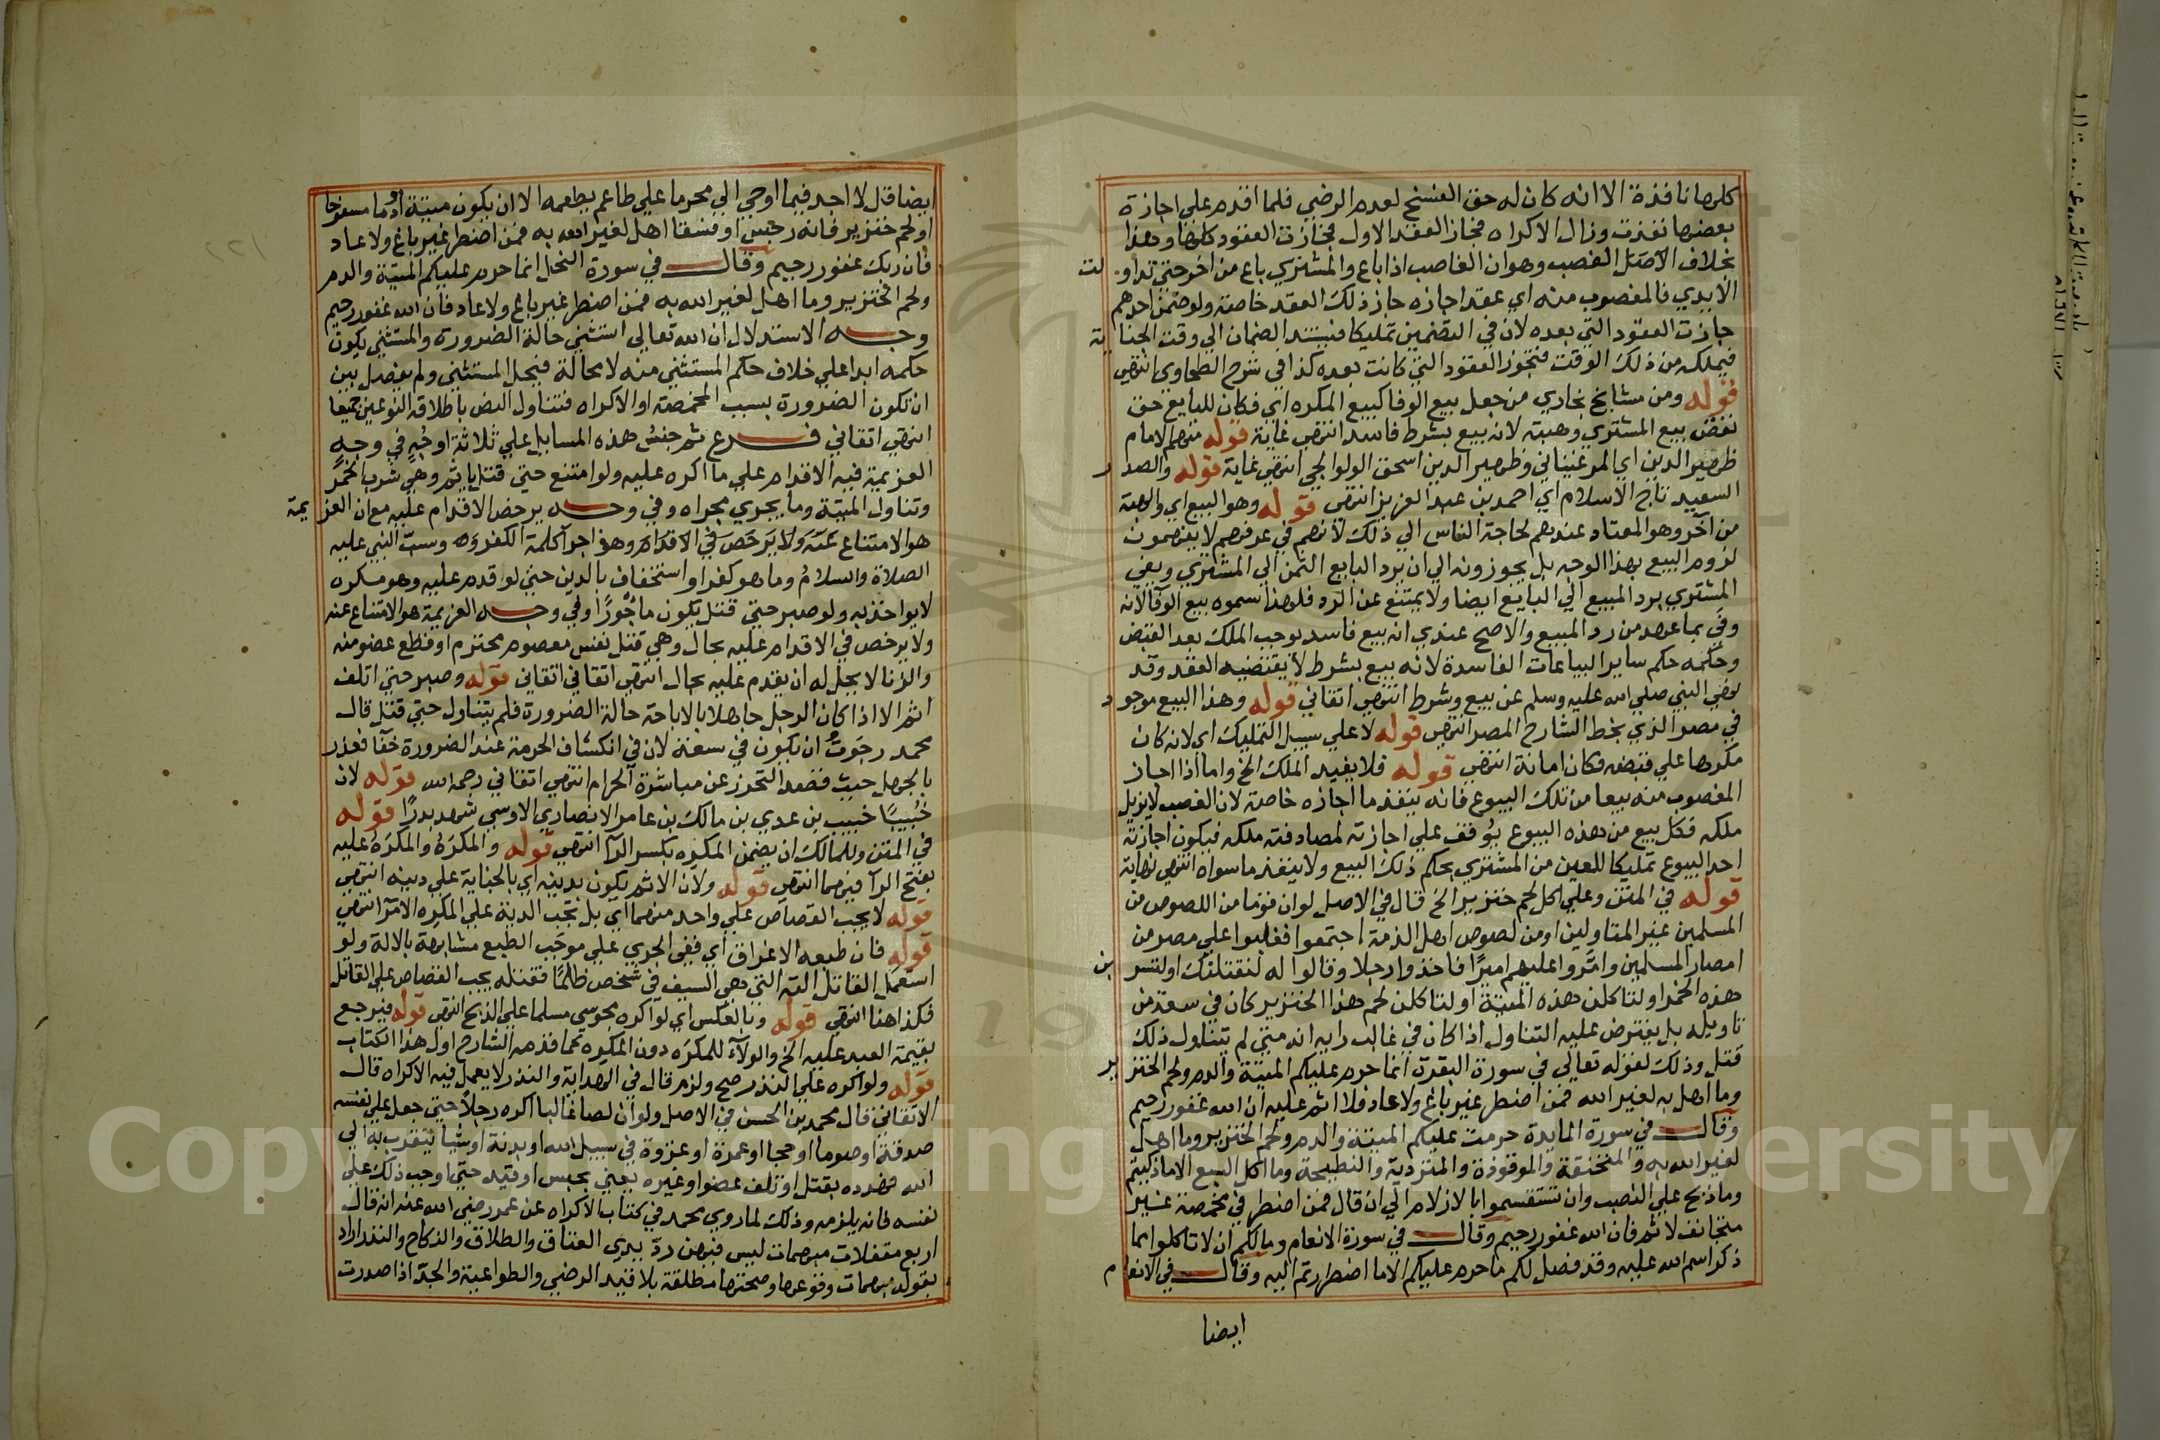 كلها نافذة الا انه كان له حق الفسخ لعدم الرضي فلما اقدم علي اجازة
بعضها نفذت وزال الاكراه فجاز العقد الاول فجازت العقود كلها وهذا
بخلاف الاصل الغصب وهوان الغاصب اذا باع والمشتري باع من اخر حتي تداولت
الايدي فالمغصوب منه اي عقد اجازه جاز ذلك العقد خاصة ولو ضمن احدهم
جازت العقود التي بعده لان في التضمين تمليكا فيستند الضمان الي وقت الجناية
فيملكه من ذلك الوقت فتجوز العقود التي كانت بعده كذا في شرح الطحاوي انتهي
قوله ومن مشايخ بخاري من جعل بيع الوفا كبيع المكره اي فكان للبايع حق
نقض بيع المشتري وهبته لانه بيع بشرط فاسد انتهي غاية قوله منهم الامام
ظهير الدين اي المرغيناني وظهير الدين اسحق الولوالجي انتهي غاية قوله والصدر
السعيد تاج الاسلام اي احمد بن عبد العزيز انتهي قوله وهو البيع اي والهبة
من آخر وهو المعتاد عندهم لحاجة الناس الي ذلك لانهم في عرفهم لا يفهمون
لزوم البيع بهذا الوجه بل يجوزونه الي ان يرد البايع الثمن الي المشتري ويفي
المشتري برد المبيع الي البايع ايضا ولا يمتنع عن الرد فلهذا سموه بيع الوفا لانه
وفي بما عهد من رد المبيع والاصح عندي انه بيع فاسد يوجب الملك بعد القبض
وحكمه حكم ساير البياعات الفاسدة لانه بيع بشرط لا يقتضيه العقد وقد
نهي النبي صلي الله عليه وسلم عن بيع وشرط انتهي اتقاني قوله وهذا البيع موجود
في مصر الذي بخط الشارح المصر انتهي قوله لا علي سبيل التمليك اي لانه كان
مكرها علي قبضه فكان امانة انتهي قوله فلا يفيد الملك الخ واما اذا اجاز
المغصوب منه بيعا من تلك البيوع فانه ينفذ ما اجازه خاصة لان الغصب لا يزيل
ملكه فكل بيع من هذه البيوع يوقف علي اجازته لمصادفته ملكه فيكون اجازته
احد البيوع تمليكا للعين من المشتري بحكم ذلك البيع ولا ينفذ ما سواه انتهي نهاية
قوله في المتن وعلي اكل لحم خنزير الخ قال في الاصل لو ان قوما من اللصوص من
المسلمين غير المتاولين او من لصوص اهل الذمة اجتمعوا فغلبوا علي مصر من
امصار المسلمين وامروا عليهم اميرا فاخذوا رجلا وقالوا له لنقتلنك او لتشربن
هذه الخمر او لتاكلن هذه الميتة او لتاكلن لحم هذا الخنزير كان في سعة من
تاويله بل يفترض عليه التناول اذا كان في غالب رايه انه متي لم يتناول ذلك
قتل وذلك لقوله تعالي في سورة البقرة انما حرم عليكم الميتة والدم ولحم الخنزير
وما اهل به لغير الله فمن اضطر غير باغ ولا عاد فلا اثم عليه ان الله غفور رحيم
وقال في سورة المايدة حرمت عليكم الميتة والدم ولحم الخنزير وما اهل
لغير الله به والمنخنقة والموقوذة والمتردية والنطيحة وما اكل السبع الا ما ذكيتم
وما ذبح علي النصب وان تستقسموا بالازلام الي ان قال فمن اضطر في مخمصة غير
متجانف لاثم فان الله غفور رحيم وقال في سورة الانعام وما لكم ان لا تاكلوا مما
ذكر اسم الله عليه وقد فصل لكم ما حرم عليكم الا ما اضطررتم اليه وقال في الانعام
ايضا
ايضا قل لا اجد فيما اوحي الي محرما علي طاعم يطعمه الا ان يكون ميتة او دما مسفوحا
او لحم خنزير فانه رجس او فسقا اهل لغير الله به فمن اضطر غير باغ ولا عاد
فان ربك غفور رحيم وقال في سورة النحل انما حرم عليكم الميتة والدم
ولحم الخنزير وما اهل لغير الله به فمن اضطر غير باغ ولا عاد فان الله غفور رحيم
وجه الاستدلال ان الله تعالي استثني حالة الضرورة والمستثني يكون
حكمه ابدا علي خلاف حكم المستثني منه لا محالة فيحل المستثني ولم يفصل بين
ان تكون الضرورة بسبب المخمصة او الاكراه فتناول النص باطلاقه النوعين جميعا
انتهي اتقاني فرع ثم جنس هذه المسايل علي ثلاثة اوجه في وجه
العزيمة فيه الاقدام علي ما اكره عليه ولو امتنع حتي قتل ياثم وهي شرب الخمر
وتناول الميتة وما يجري مجراه وفي وجه يرخص الاقدام عليه مع ان العزيمة
هو الامتناع عنه ولا يرخص في الاقدام وهو اجرا كلمة الكفر وسب النبي عليه
الصلاة والسلام وما هو كفر او استخفاف بالدين حتي لو اقدم عليه وهو مكره
لا يواخذ به ولو صبر حتي قتل يكون ماجورا وفي وجه العزيمة هو الامتناع عنه
ولا يرخص في الاقدام عليه بحال وهي قتل نفس معصوم محترم او قطع عضو منه
والزنا لا يحل له ان يقدم عليه بحال انتهي اتقاني اتقاني قوله وصبر حتي اتلف
اثم الا اذا كان الرجل جاهلا بالاباحة حالة الضرورة فلم يتناول حتي قتل قال
محمد رجوت ان يكون في سعة لان في انكشاف الحرمة عند الضرورة خفا فعذر
بالجهل حيث قصد التحرز عن مباشرة الحرام انتهي اتقاني رحمه الله قوله لان
خبيبا خبيب بن عدي بن مالك بن عامر الانصاري الاوسي شهد بدرا قوله
في المتن وللمالك ان يضمن المكره بكسر الرا انتهي قوله والمكره والمكره عليه
بفتح الرا فيهما انتهي قوله ولان الاثم يكون بدينه اي بالجناية علي دينه انتهي
قوله لا يجب القصاص علي واحد منهما اي بل تجب الدية علي المكره الامر انتهي
قوله فان طبعه الاغراق اي ففي الجري علي موجب الطبع مشابهة بالالة ولو
استعمل القاتل الته التي هي السيف في شخص ظلما فقتله يجب القصاص علي القاتل
فكذا هنا انتهي قوله وبالعكس اي لو اكره مجوسي مسلما علي الذبح انتهي قوله فيرجع
بقيمة العبد عليه الخ والولاء للمكره دون المكره كما قدمه الشارح اول هذا الكتاب
قوله ولو اكره علي النذر صح ولزم قال في الهداية والنذر لا يعمل فيه الاكراه قال
الاتقاني قال محمد بن الحسن في الاصل ولو ان لصا غالبا اكره رجلا حتي جعل علي نفسه
صدقة او صوما او حجا او عمرة او غزوة في سبيل الله او بدنة او شيا يتقرب به الي
الله فهدده بقتل او تلف عضو او غيره يعني بحبس او قيد حتي اوجب ذلك علي
نفسه فانه يلزمه وذلك لما روي محمد في كتاب الاكراه عن عمر رضي الله عنه انه قال
اربع مقفلات مبهمات ليس فيهن رد يدي العتاق والطلاق والنكاح والنذر اراد
بقوله مبهمات وقوعها وصحتها مطلقة بلا قيد الرضي والطواعية والجد اذا صدرت